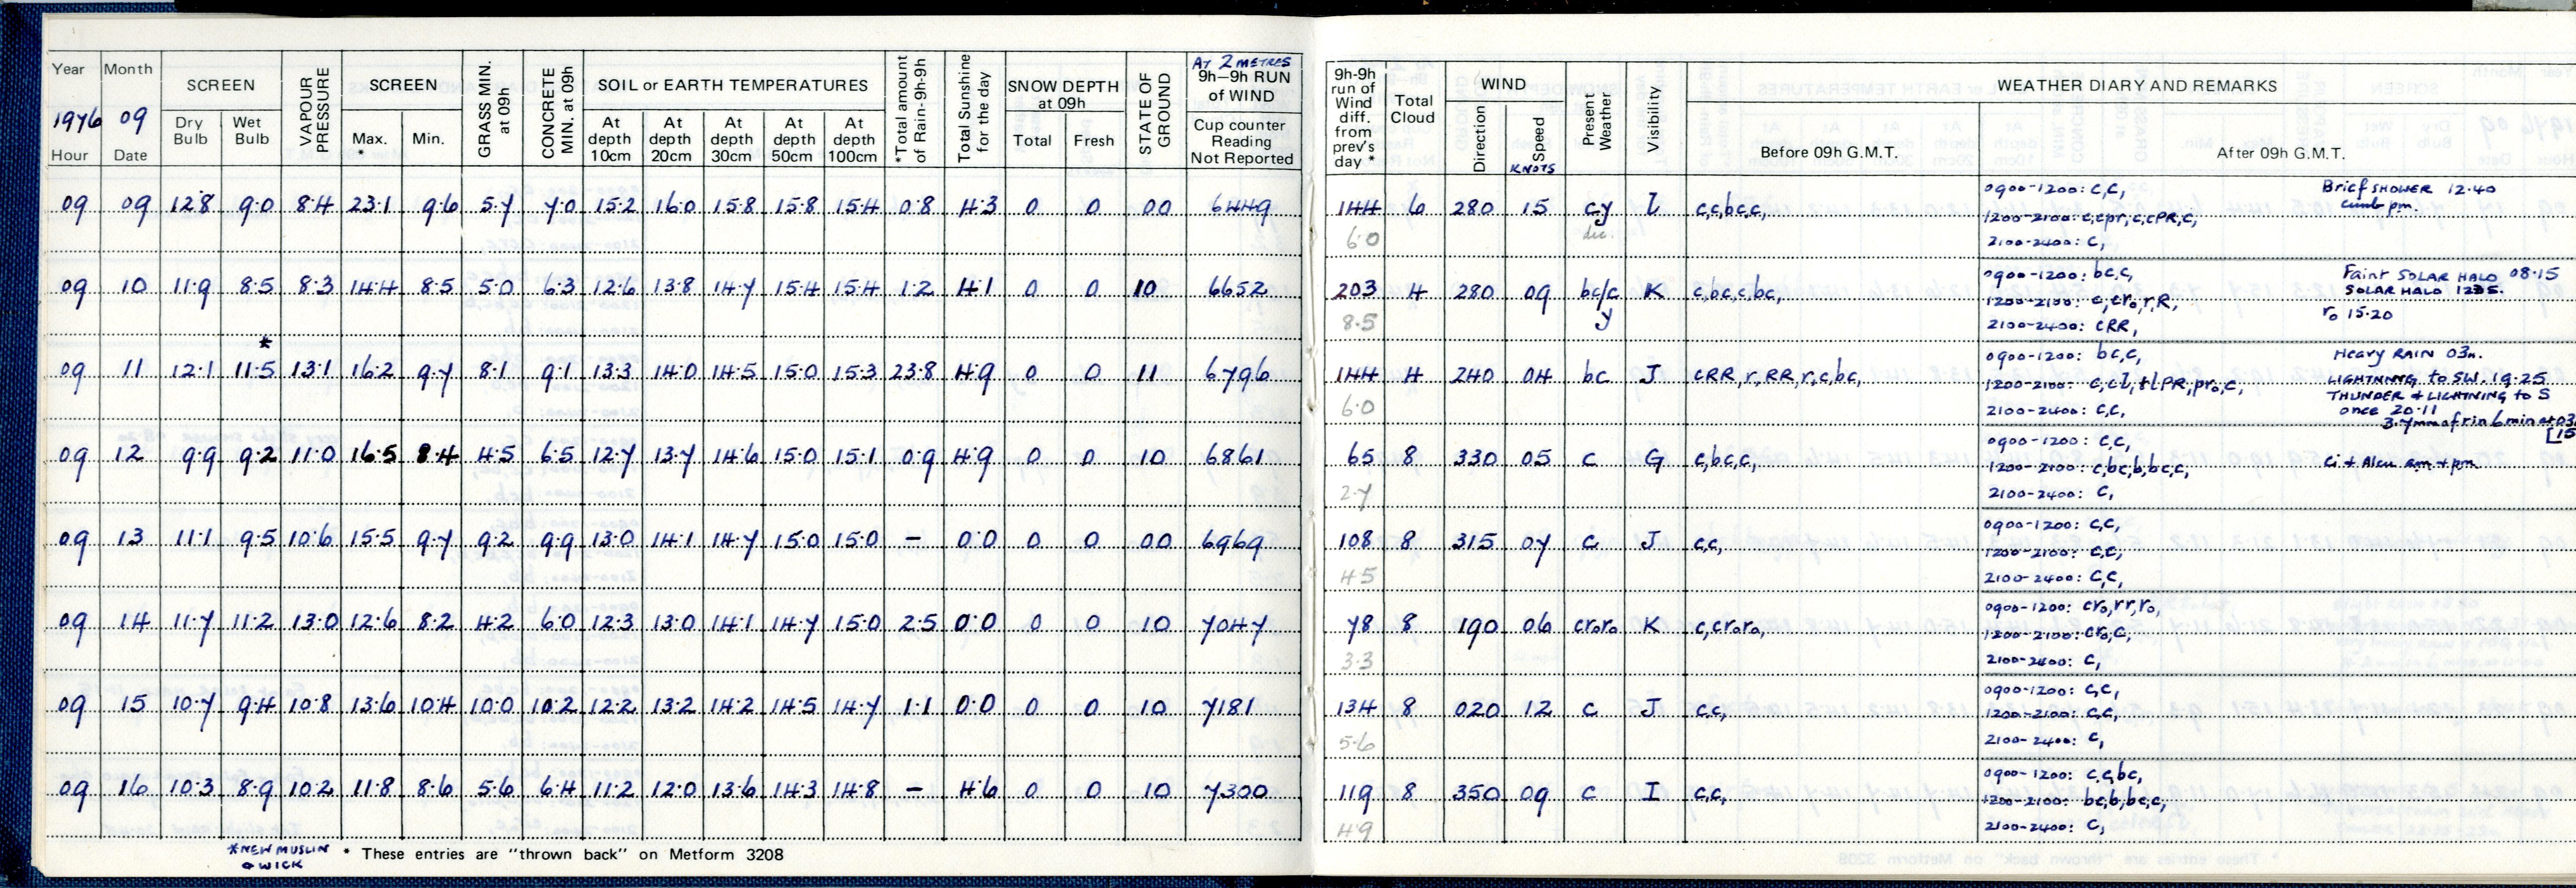 Year Month SCREEN VAPOUR PRESSURE SCREEN GRASS MIN. at 09h CONCRETE MIN. at 09h SOIL or EARTH TEMPERATURES *Total amount of Rain-9h-9h Total Sunshine for the day SNOW DEPTH at 09h STATE OF GROUND AT 2 METRES 9h–9h RUN of WIND
1976 09 Dry Bulb Wet Bulb Max. * Min. At depth 10cm At depth 20cm At depth 30cm At depth 50cm At depth 100cm Total Fresh Cup counter Reading Not Reported
Hour Date
09 09 12.8 9.0 8.4 23.1 9.6 5.7 7.0 15.2 16.0 15.8 15.8 15.4 0.8 4.3 0 0 00 6449
09 10 11.9 8.5 8.3 14.4 8.5 5.0 6.3 12.6 13.8 14.7 15.4 15.4 1.2 4.1 0 0 10 6652
*
09 11 12.1 11.5 13.1 16.2 9.7 8.1 9.1 13.3 14.0 14.5 15.0 15.3 23.8 4.9 0 0 11 6796
09 12 9.9 9.2 11.0 16.5 8.4 4.5 6.5 12.7 13.7 14.6 15.0 15.1 0.9 4.9 0 0 10 6861
09 13 11.1 9.5 10.6 15.5 9.7 9.2 9.9 13.0 14.1 14.7 15.0 15.0 – 0.0 0 0 00 6969
09 14 11.7 11.2 13.0 12.6 8.2 4.2 6.0 12.3 13.0 14.1 14.7 15.0 2.5 0.0 0 0 10 7047
09 15 10.7 9.4 10.8 13.6 10.4 10.0 10.2 12.2 13.2 14.2 14.5 14.7 1.1 0.0 0 0 10 7181
09 16 10.3 8.9 10.2 11.8 8.6 5.6 6.4 11.2 12.0 13.6 14.3 14.8 – 4.6 0 0 10 7300
*NEW MUSLIN & WICK
* These entries are "thrown back" on Metform 3208
9h-9h run of Wind diff. from prev's day * Total Cloud WIND Direction Speed KNOTS Present Weather Visibility WEATHER DIARY AND REMARKS
Before 09h G.M.T. After 09h G.M.T.
144 6 280 15 cy l c,c,bc,c, 0900-1200: c,c, Brief SHOWER 12.40
6.0 dec. 1200-2100: c,cpr,c,cPR,c, cumb pm.
2100-2400: c,
203 4 280 09 bc/c K c,bc,c,bc, 0900-1200: bc,c, Faint SOLAR HALO 08.15
8.5 y 1200-2100: c,cr₀,r,R, SOLAR HALO 1235.
2100-2400: cRR, r₀ 15.20
144 4 240 04 bc J cRR,r,RR,r,c,bc, 0900-1200: bc,c, Heavy RAIN 03h.
6.0 1200-2100: c,cl,tlPR,pr₀,c, LIGHTNING to SW. 19.25
2100-2400: c,c, THUNDER & LIGHTNING to S
once 20.11
3.7mm of r in 6 min at 03
[15
65 8 330 05 c G c,bc,c, 0900-1200: c,c,
2.7 1200-2100: c,bc,b,bc,c, Ci + Alcu am + pm
2100-2400: c,
108 8 315 07 c J c,c, 0900-1200: c,c,
4.5 1200-2100: c,c,
2100-2400: c,c,
78 8 190 06 cr₀r₀ K c,cr₀r₀, 0900-1200: cr₀,rr,r₀,
3.3 1200-2100: cr₀,c,
2100-2400: c,
134 8 020 12 c J c,c, 0900-1200: c,c,
5.6 1200-2100: c,c,
2100-2400: c,
119 8 350 09 c I c,c, 0900-1200: c,c,bc,
4.9 1200-2100: bc,b,bc,c,
2100-2400: c,